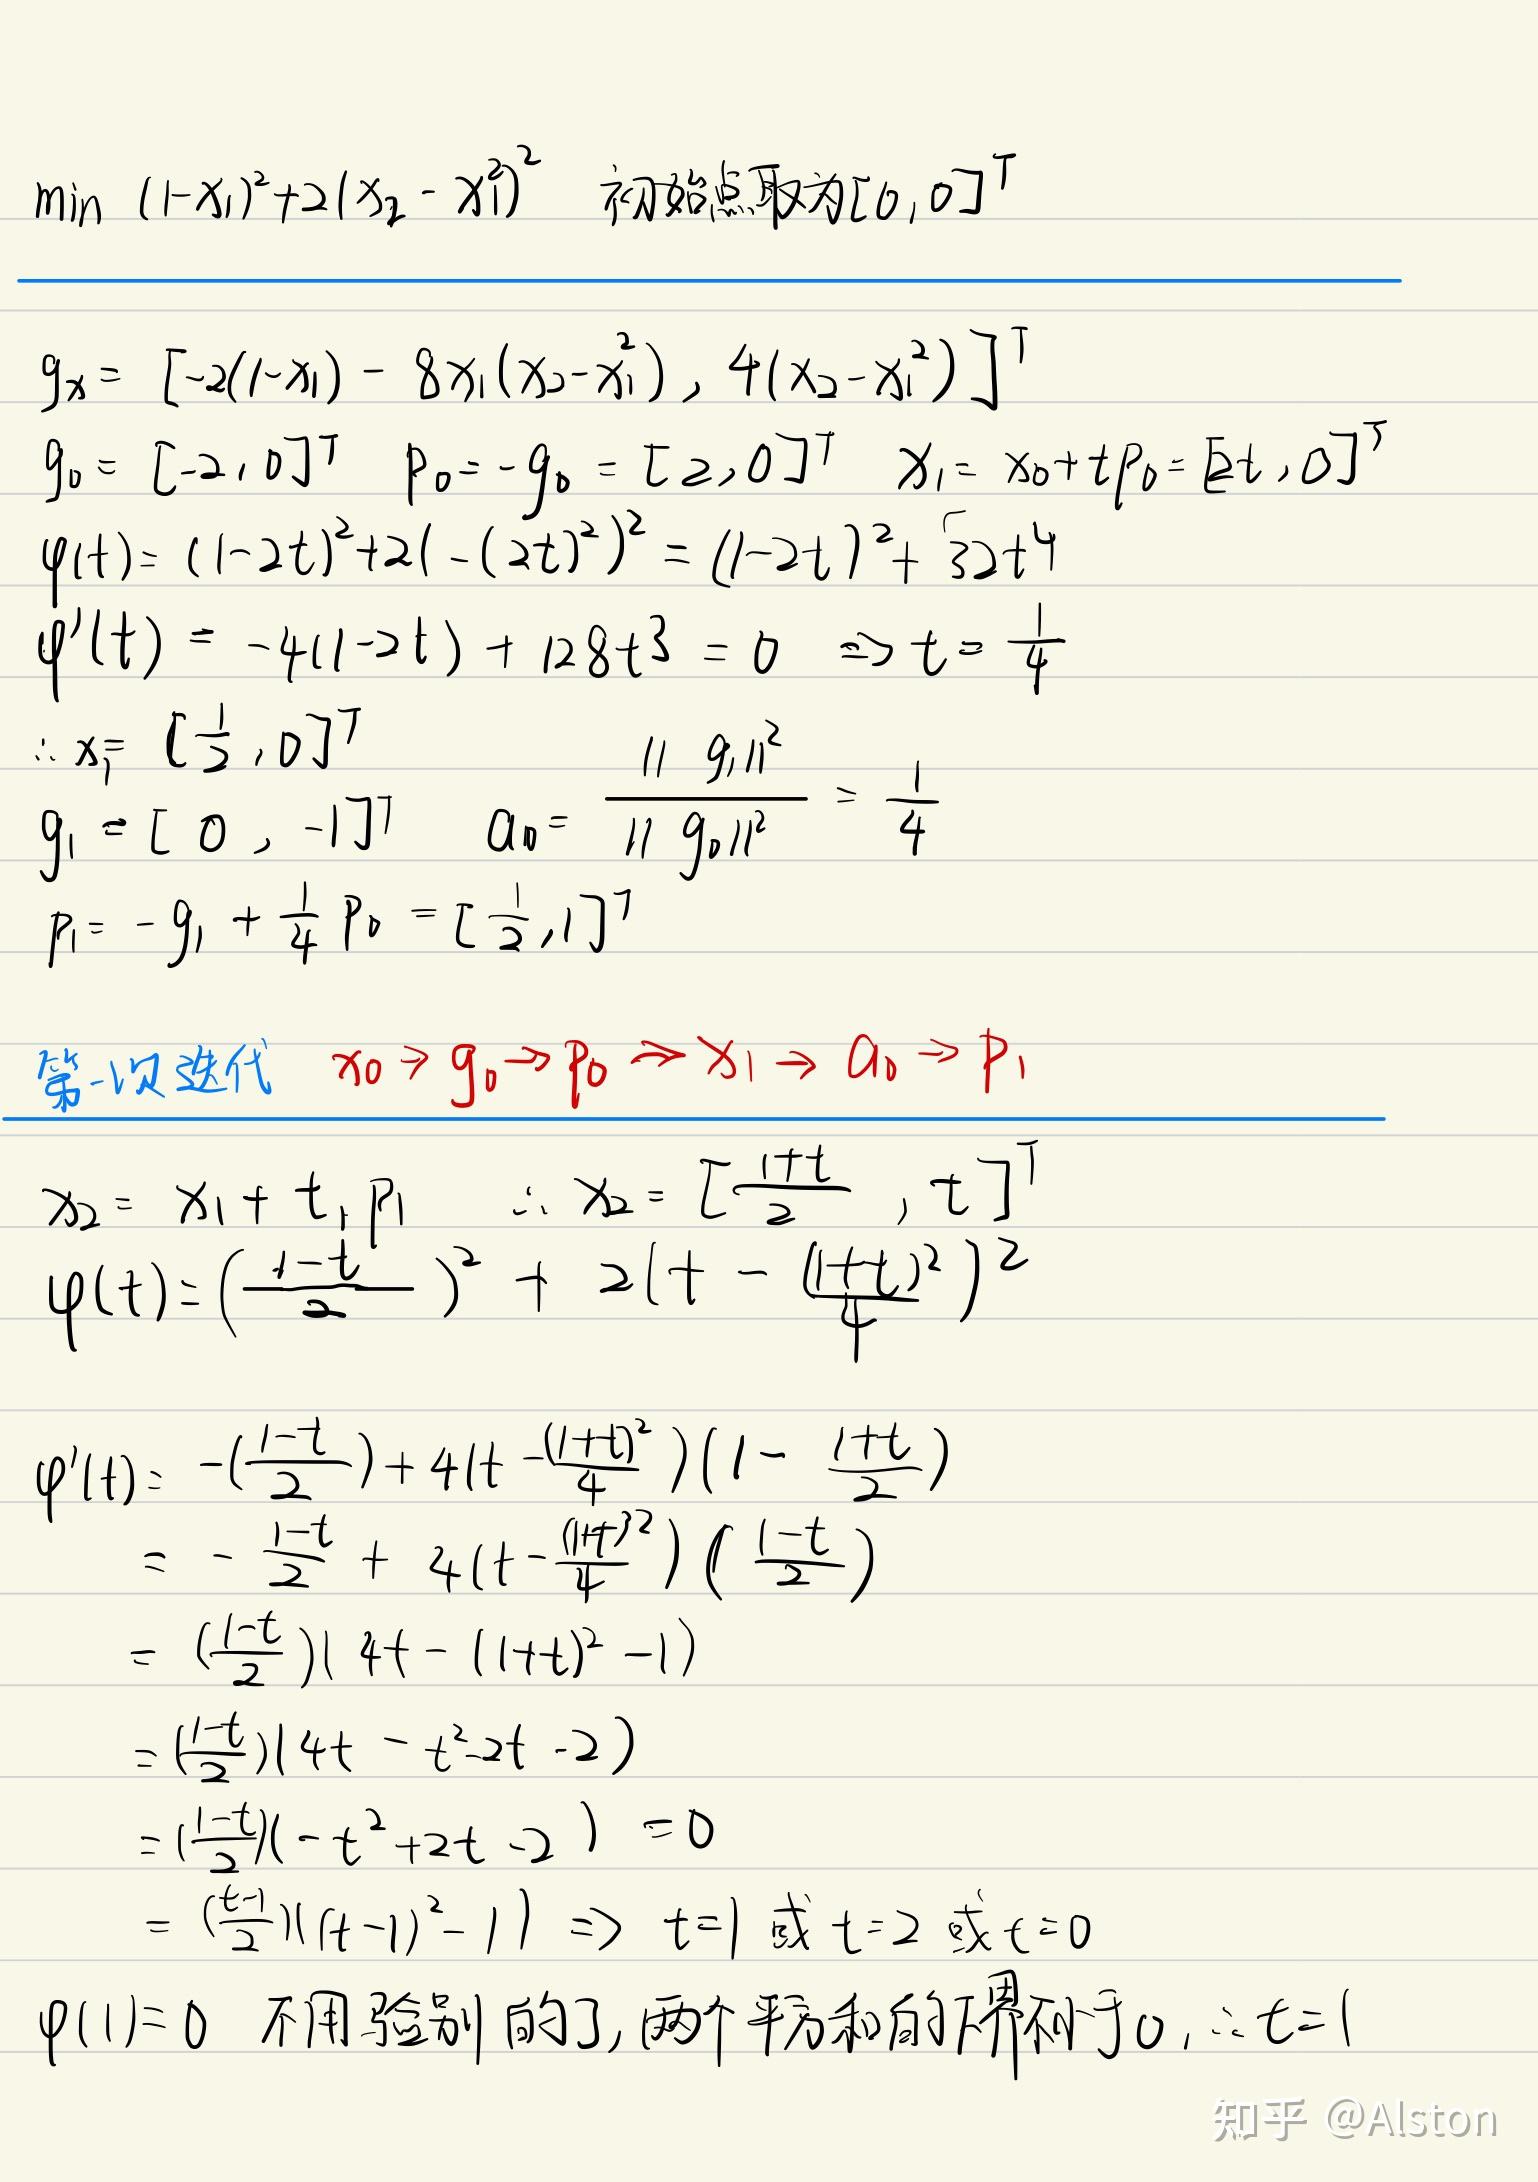 min (1-x₁)²+2(x₂-x₁²)² 初始点取为[0,0]ᵀ
gₓ = [-2(1-x₁) - 8x₁(x₂-x₁²), 4(x₂-x₁²)]ᵀ
g₀ = [-2,0]ᵀ p₀=-g₀ = [2,0]ᵀ x₁= x₀+tp₀=[2t,0]ᵀ
φ(t)= (1-2t)²+2(-(2t)²)² = (1-2t)²+ 32t⁴
φ'(t) = -4(1-2t) + 128t³ = 0 => t= 1/4
∴ x₁= [1/2,0]ᵀ
g₁ = [0, -1]ᵀ a₀= ||g₁||²/||g₀||² = 1/4
p₁= -g₁ + 1/4 p₀ = [1/2,1]ᵀ
第一次迭代 x₀→g₀→p₀→x₁→a₀→p₁
x₂= x₁+t₁p₁ ∴ x₂= [(1+t)/2, t]ᵀ
φ(t)=((1-t)/2)² + 2(t - (1+t)²/4)²
φ'(t)= -((1-t)/2)+4(t-(1+t)²/4)(1-(1+t)/2)
= -(1-t)/2 + 4(t-(1+t)²/4)((1-t)/2)
= ((1-t)/2)(4t-(1+t)²-1)
=((1-t)/2)(4t-t²-2t-2)
=((1-t)/2)(-t²+2t-2) =0
= ((t-1)/2)((t-1)²-1) => t=1 或 t=2 或 t=0
φ(1)=0 不用验别的了,两个平方和的下界不小于0,∴t=1
知乎 @Alston